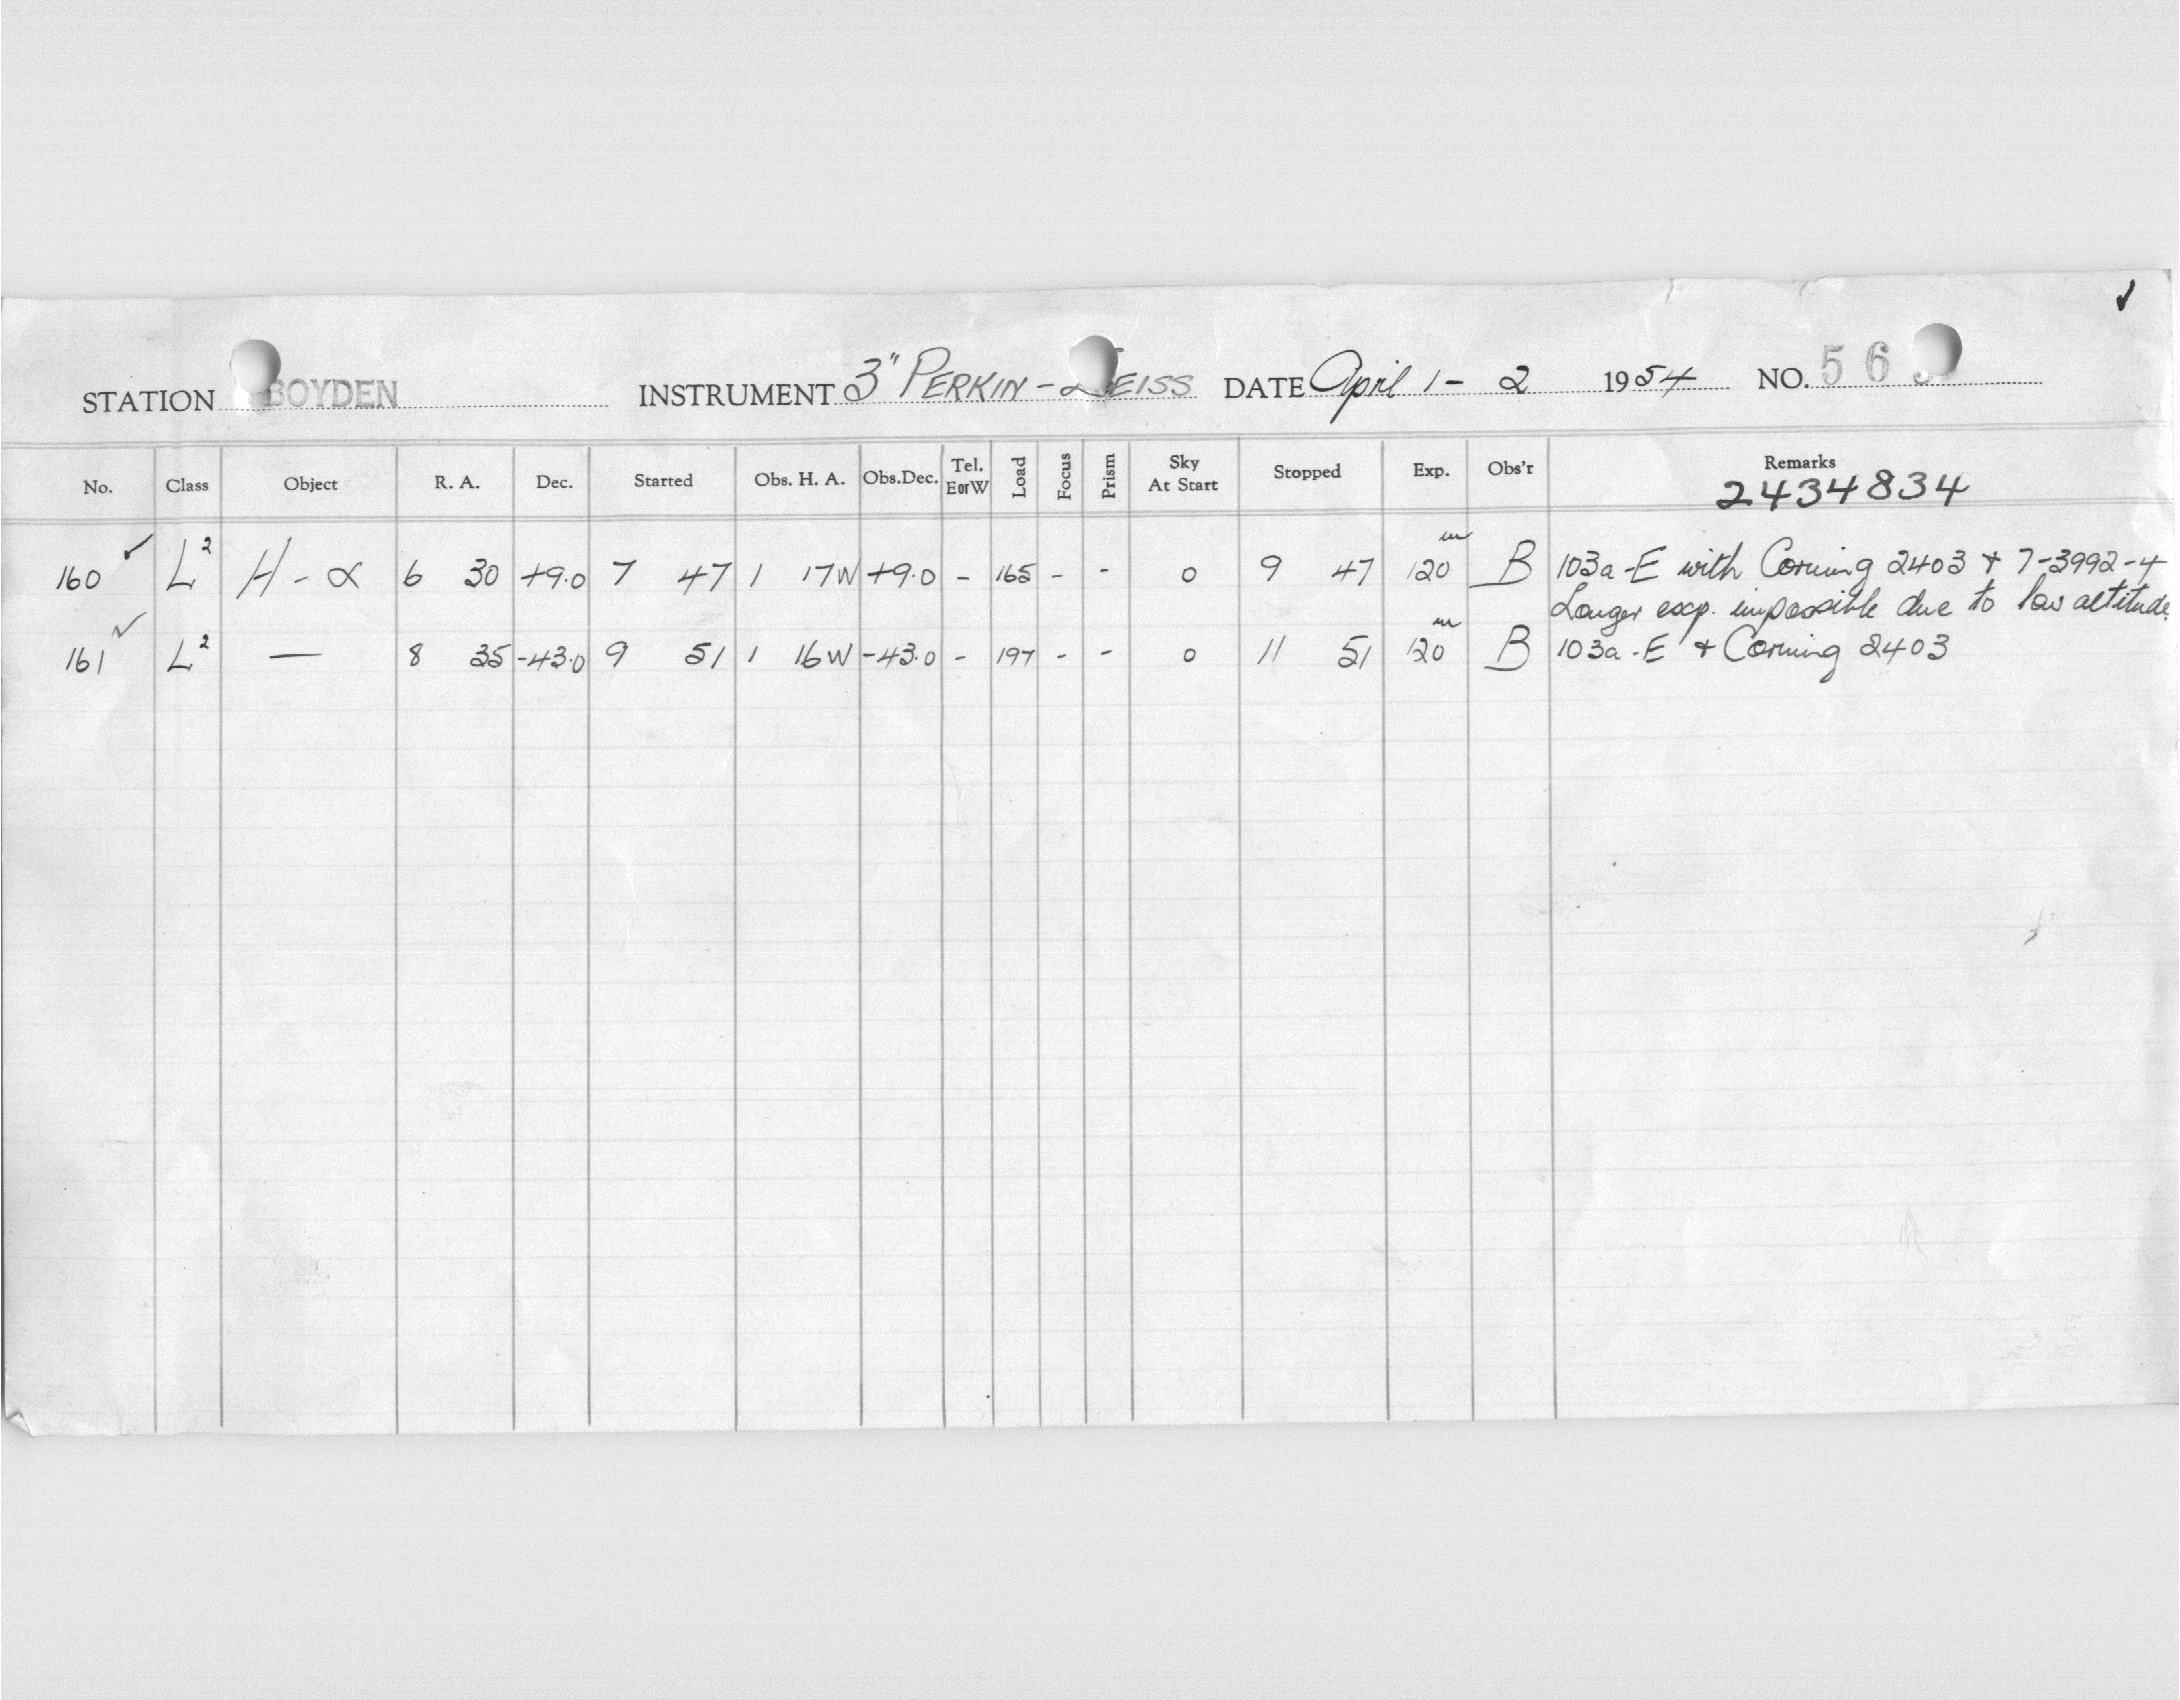 ✓
STATION BOYDEN INSTRUMENT 3" PERKIN - ZEISS DATE April 1 - 2 1954 NO. 5 6
No. Class Object R. A. Dec. Started Obs. H. A. Obs.Dec. Tel. E or W Load Focus Prism Sky At Start Stopped Exp. Obs'r Remarks
2434834
160 ✓ L² H-α 6 30 +9.0 7 47 1 17W +9.0 - 165 - - 0 9 47 120 m B 103a-E with Corning 2403 + 7-3992-4
Longer exp. impossible due to low altitude.
161 ✓ L² — 8 35 -43.0 9 51 1 16W -43.0 - 197 - - 0 11 51 120 m B 103a-E + Corning 2403